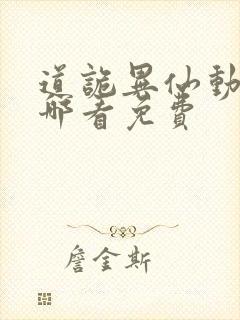 道詭異仙動
哪看免費
詹金斯